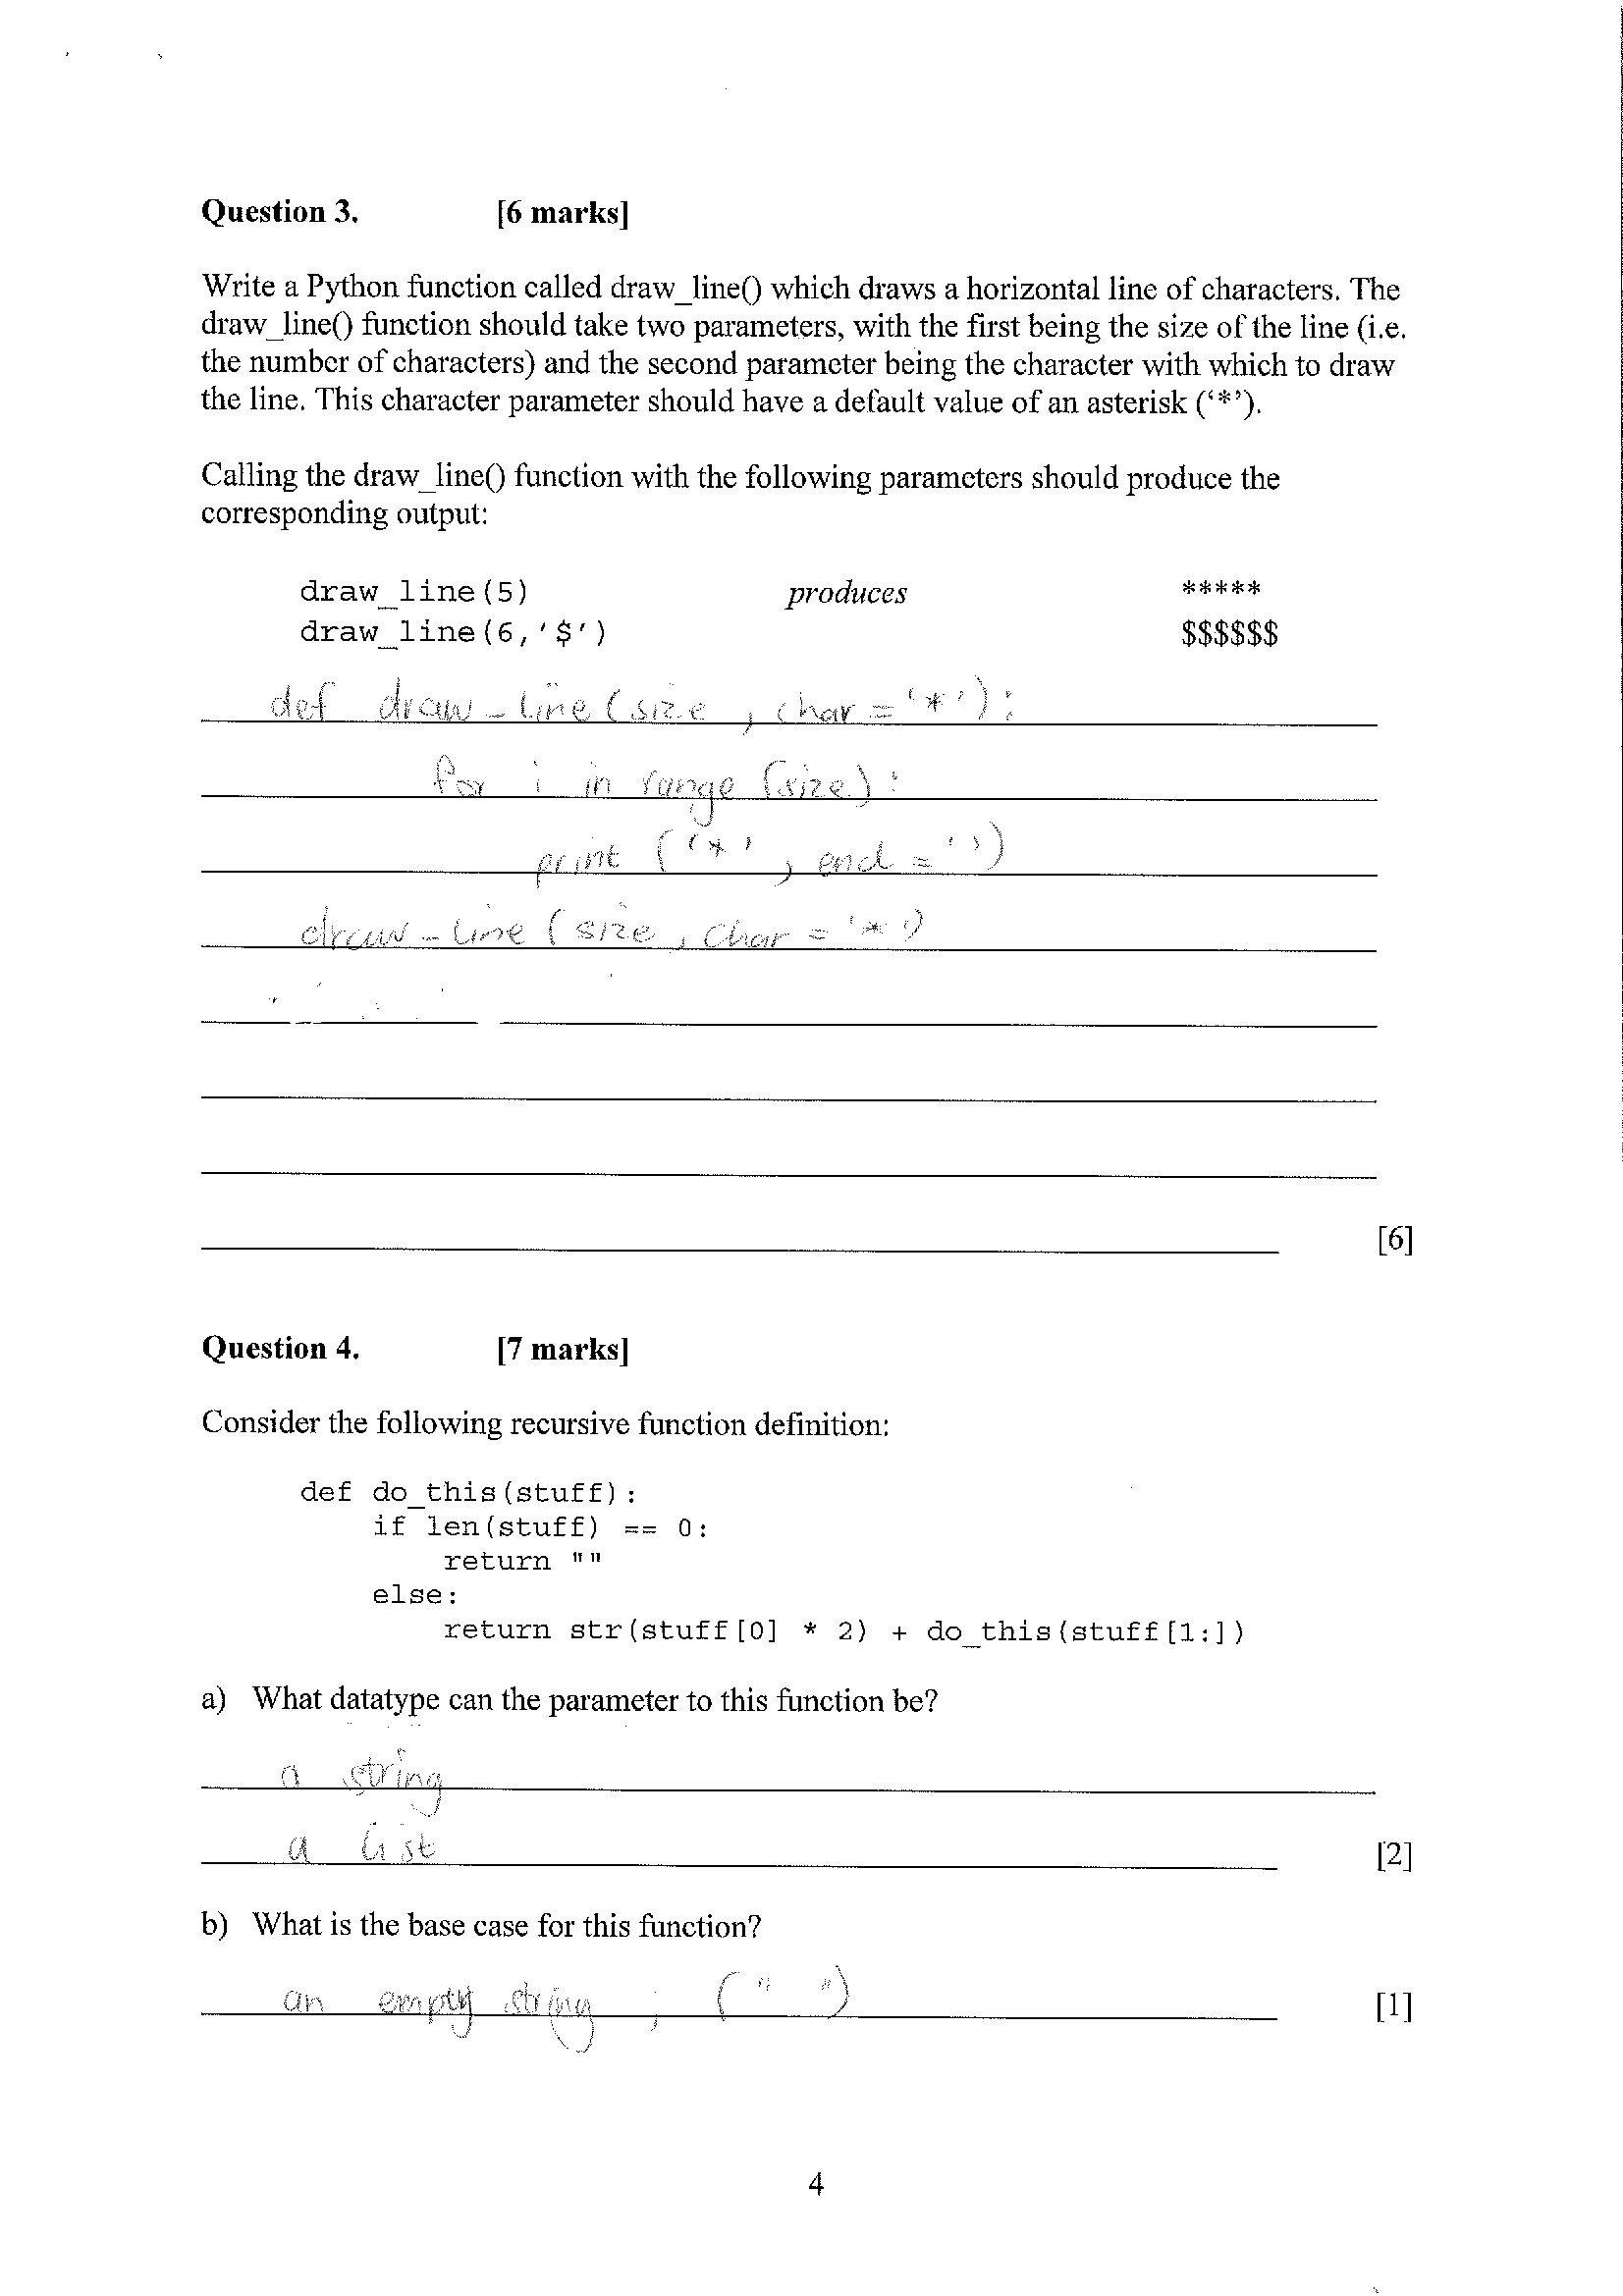 Question 3. [6 marks]
Write a Python function called draw_line() which draws a horizontal line of characters. The
draw_line() function should take two parameters, with the first being the size of the line (i.e.
the number of characters) and the second parameter being the character with which to draw
the line. This character parameter should have a default value of an asterisk (‘*’).
Calling the draw_line() function with the following parameters should produce the
corresponding output:
draw_line(5) produces *****
draw_line(6,'$') $$$$$$
def draw_line(size, char = '*'):
for i in range (size):
print ('*', end = '')
draw_line (size, char = '*')
[6]
Question 4. [7 marks]
Consider the following recursive function definition:
def do_this(stuff):
if len(stuff) == 0:
return ""
else:
return str(stuff[0] * 2) + do_this(stuff[1:])
a) What datatype can the parameter to this function be?
a string
a list [2]
b) What is the base case for this function?
an empty string, (" ") [1]
4